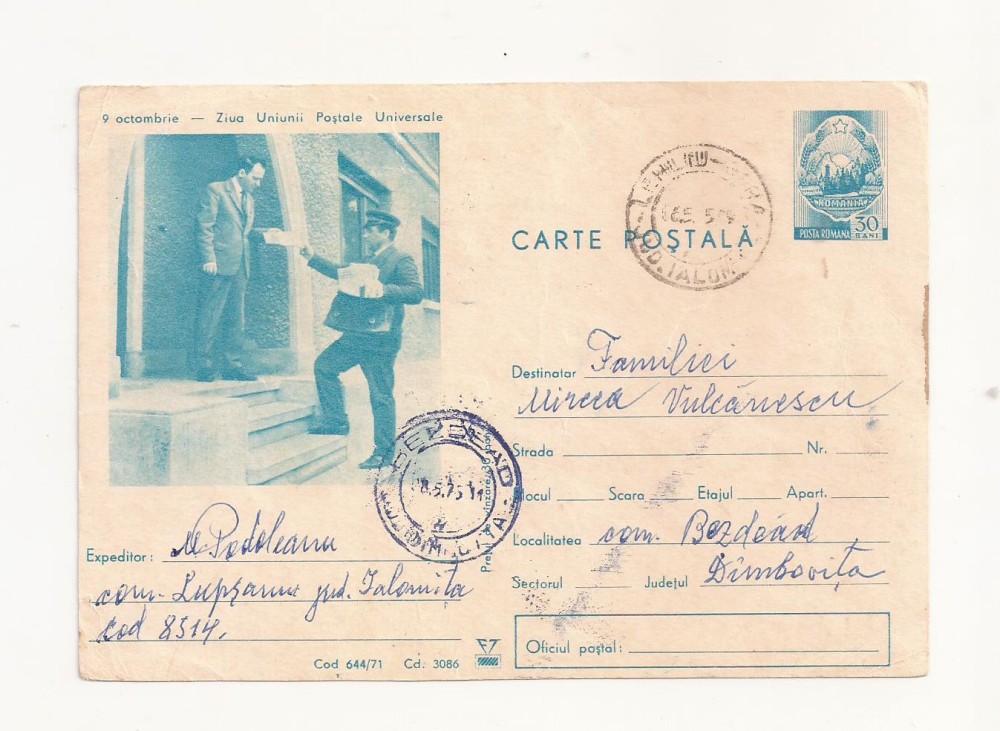 9 octombrie — Ziua Uniunii Poștale Universale
ROMANIA
POSTA ROMANA 30 BANI
CARTE POȘTALĂ
JUD. IALOM
Destinatar Familiei
Mircea Vulcănescu
Strada Nr.
Blocul Scara Etajul Apart.
Localitatea com. Bezdead
Sectorul Județul Dîmbovița
Oficiul poștal:
BEZDEAD
8.5.75
Prețul de vînzare
Expeditor: M Podoleanu
com. Lupșanu jud. Ialomița
cod 8514.
Cod 644/71 Cd. 3086